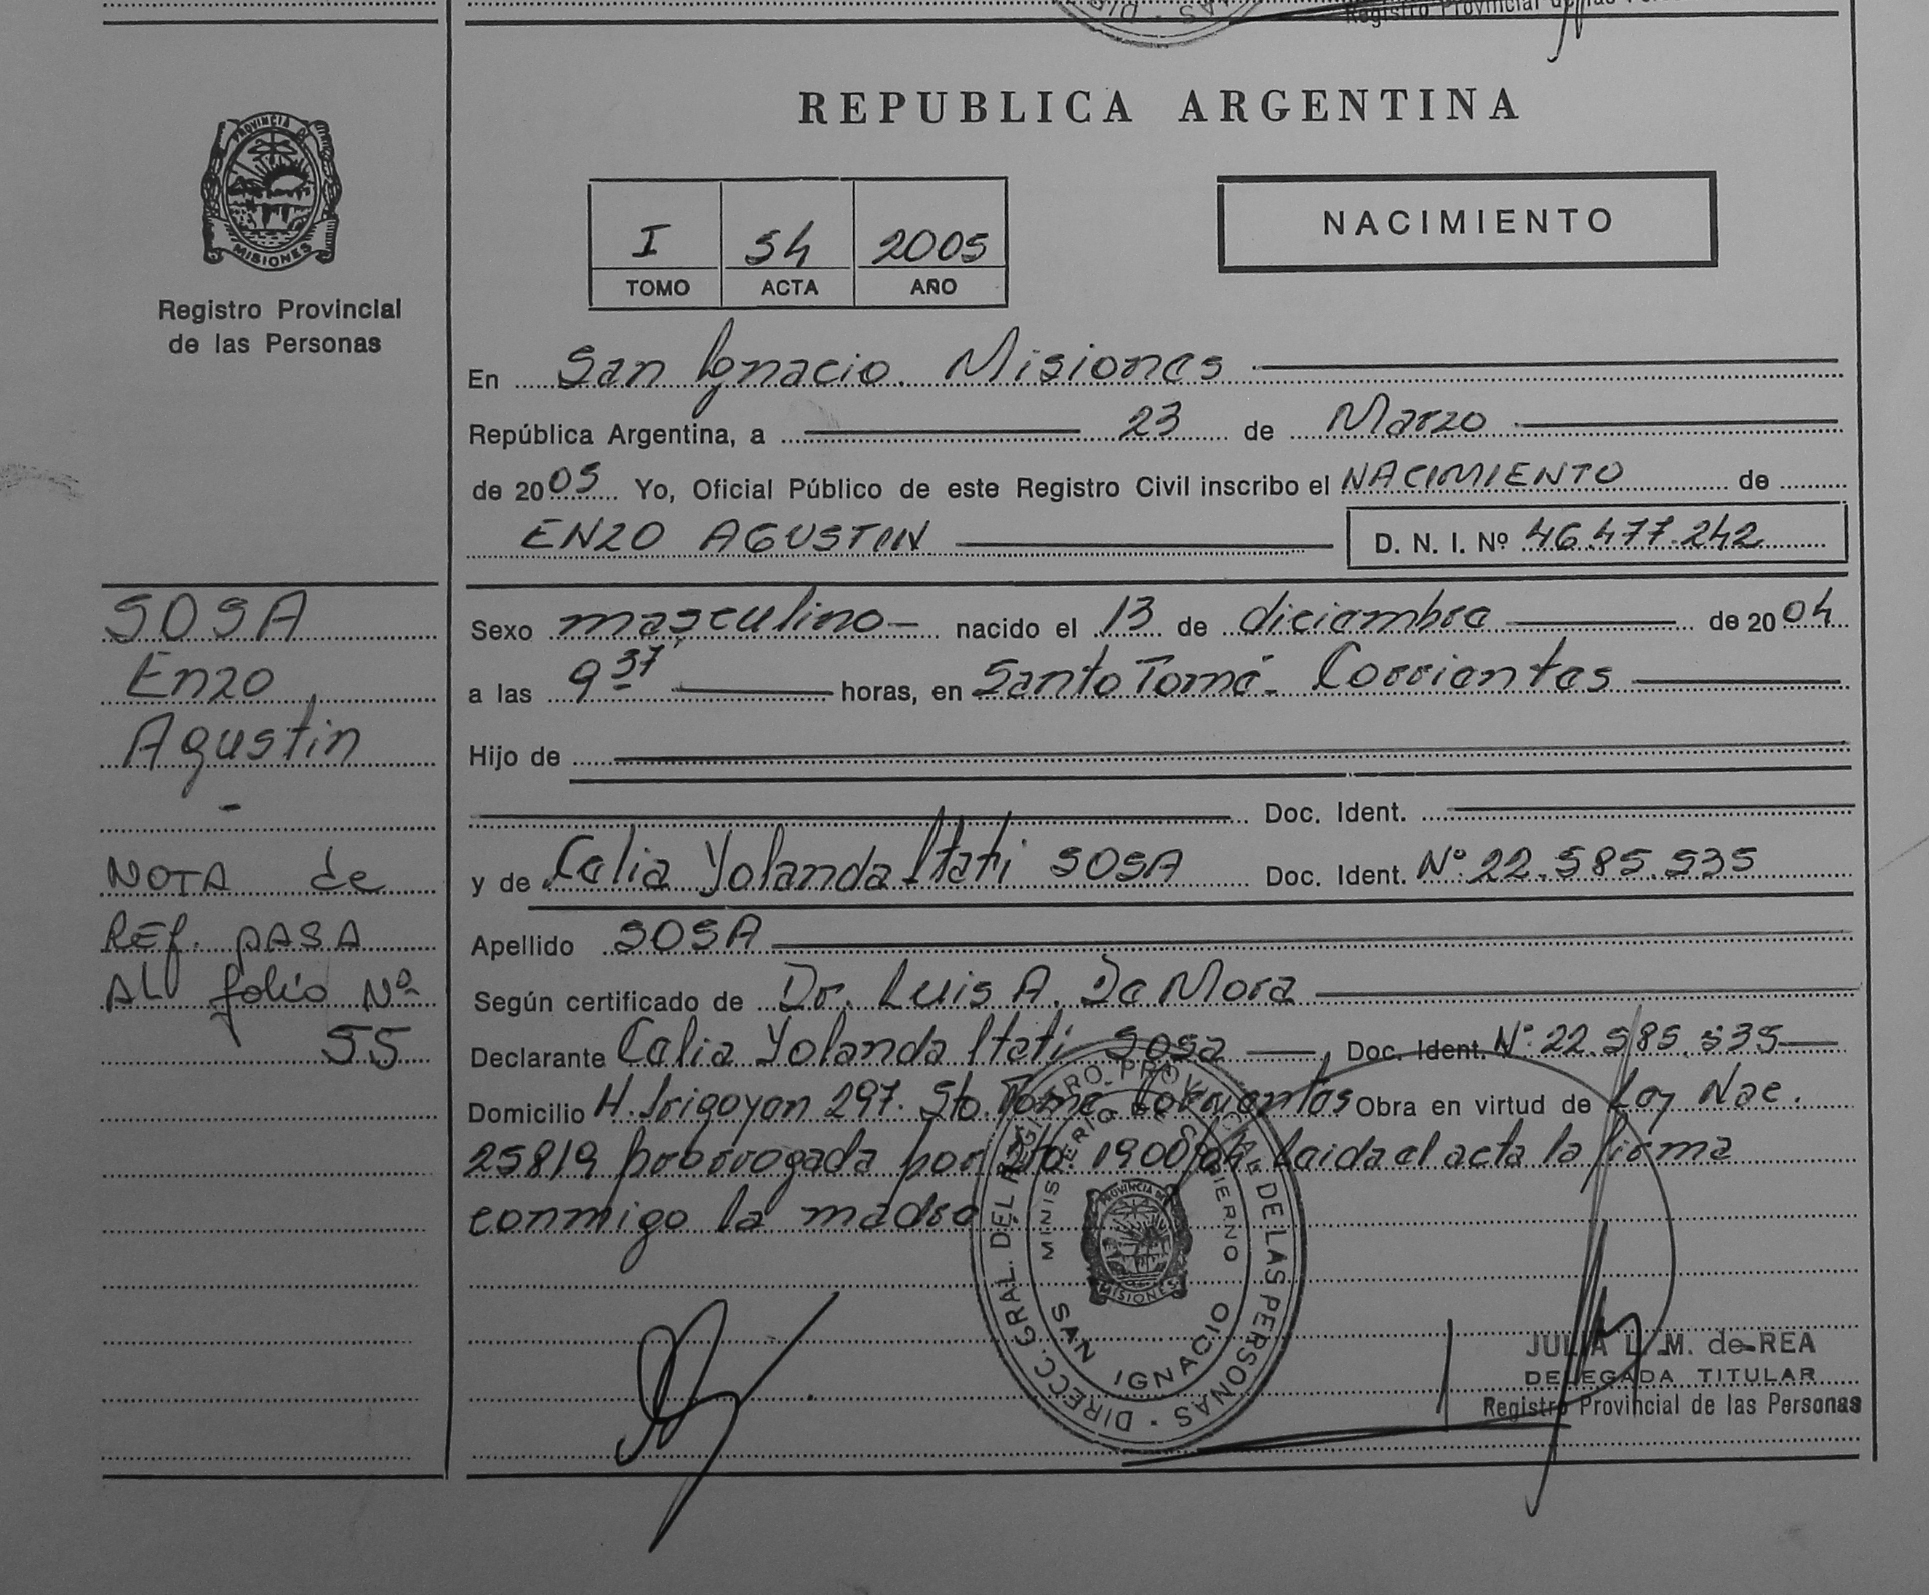 Registro Provincial de las Perso
REPUBLICA ARGENTINA
PROVINCIA DE
MISIONES
Registro Provincial
de las Personas
I 54 2005
TOMO ACTA AÑO
NACIMIENTO
En San Ignacio. Misiones
República Argentina, a 23 de Marzo
de 2005 Yo, Oficial Público de este Registro Civil inscribo el NACIMIENTO de
ENZO AGUSTIN D. N. I. Nº 46.477.242
SOSA
Enzo
Agustin
-
NOTA de
REF. PASA
AL folio Nº
55
Sexo masculino nacido el 13 de diciembre de 2004
a las 9 37 horas, en Santo Tomé - Corrientes
Hijo de
Doc. Ident.
y de Celia Yolanda Itati SOSA Doc. Ident. Nº 22.585.535
Apellido SOSA
Según certificado de Dr. Luis A. De Mora
Declarante Celia Yolanda Itati Sosa Doc. Ident. Nº 22.585.535
Domicilio H. Irigoyen 297. Sto. Tomé Corrientes Obra en virtud de Ley Nac.
25819 prorrogada por Dto. 1900/04 Leida el acta la firma
conmigo la madre
DIRECC. GRAL. DEL REGISTRO PROVINCIAL DE LAS PERSONAS
MINISTERIO DE GOBIERNO
PROVINCIA DE
MISIONES
SAN IGNACIO
JULIA L. M. de REA
DELEGADA TITULAR
Registro Provincial de las Personas